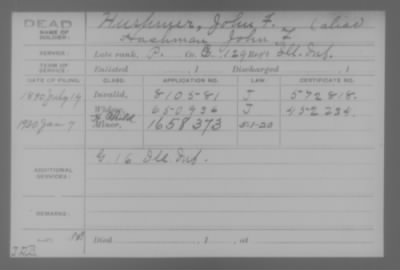 DEAD
NAME OF SOLDIER: Hushmer, John F. (alias)
Hashman John F.
SERVICE: Late rank, P. Co. G. 129 Regt Ill. Inf.
TERM OF SERVICE: Enlisted , 1 Discharged , 1
DATE OF FILING. CLASS. APPLICATION NO. LAW. CERTIFICATE NO.
1890 July 14 Invalid, 810581 J 572818.
Widow, 650236 J 452234.
1920 Jan 7 H. Child Minor, 1658373 5-1-20
ADDITIONAL SERVICES: G 16 Ill. Inf.
REMARKS:
Died , 1 , at